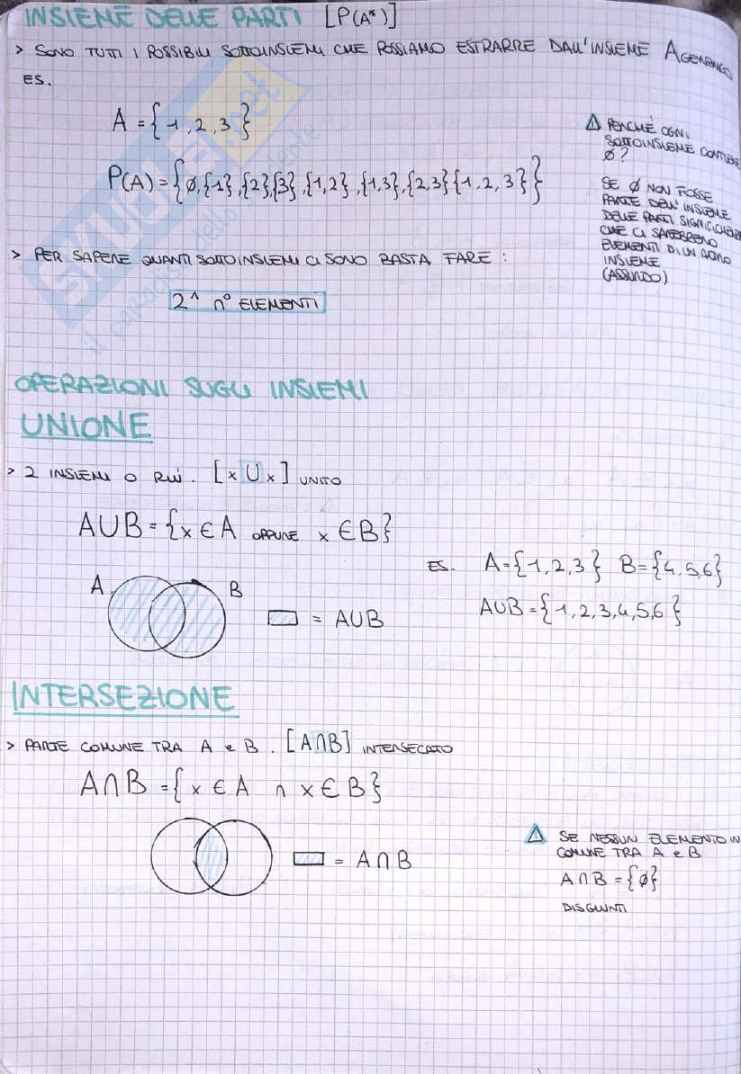 INSIEME DELLE PARTI [P(A*)]
> SONO TUTTI I POSSIBILI SOTTOINSIEMI CHE POSSIAMO ESTRARRE DALL'INSIEME A GENERICO
ES.
A = {1, 2, 3}
P(A) = {ø, {1}, {2}, {3}, {1,2}, {1,3}, {2,3} {1, 2, 3}}
⚠ PERCHÉ OGNI
SOTTOINSIEME CONTIENE
ø?
SE ø NON FOSSE
PARTE DELL'INSIEME
DELLE PARTI
CHE CI SAREBBERO
ELEMENTI DI UN
INSIEME
(ASSURDO)
> PER SAPERE QUANTI SOTTOINSIEMI CI SONO BASTA FARE :
2^ n° ELEMENTI
OPERAZIONI SUGLI INSIEMI
UNIONE
> 2 INSIEMI O PIÙ. [x U x] UNITO
A∪B = {x ∈ A OPPURE x ∈ B}
ES. A = {1, 2, 3} B = {4, 5, 6}
A∪B = {1, 2, 3, 4, 5, 6}
A B
= A∪B
INTERSEZIONE
> PARTE COMUNE TRA A e B. [A∩B] INTERSECATO
A∩B = {x ∈ A ∩ x ∈ B}
= A∩B
⚠ SE NESSUN ELEMENTO IN
COMUNE TRA A e B
A∩B = {ø}
DISGIUNTI